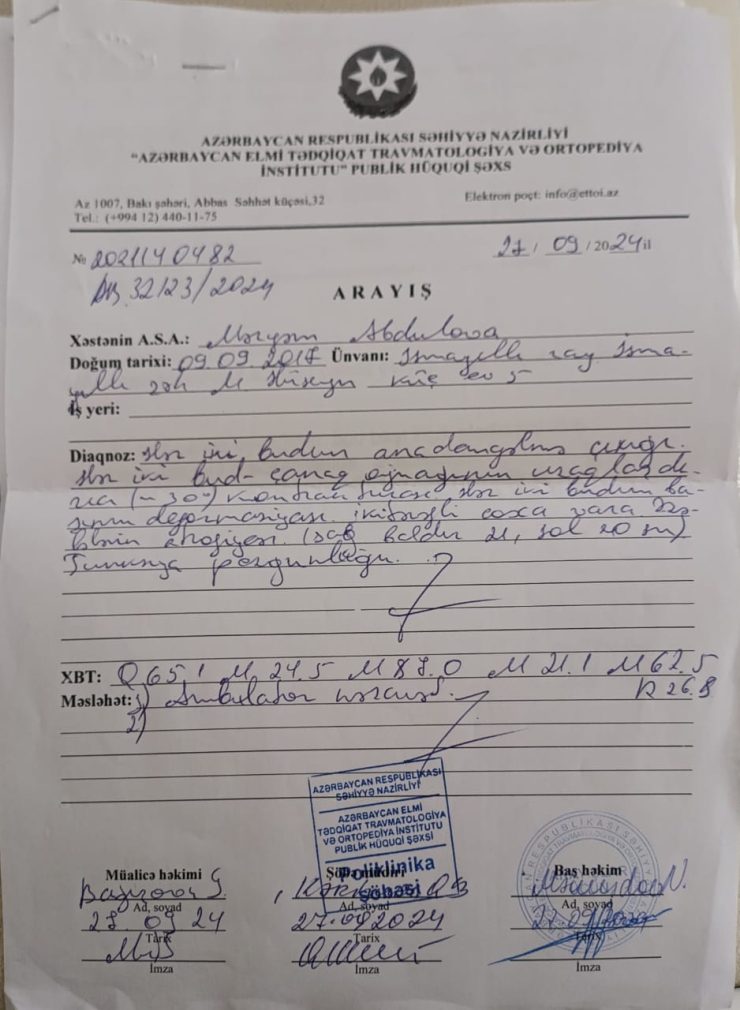 AZƏRBAYCAN RESPUBLİKASI SƏHİYYƏ NAZİRLİYİ
“AZƏRBAYCAN ELMİ TƏDQİQAT TRAVMATOLOGİYA VƏ ORTOPEDİYA
İNSTİTUTU” PUBLİK HÜQUQİ ŞƏXS
Az 1007, Bakı şəhəri, Abbas Səhhət küçəsi,32
Elektron poçt: info@ettoi.az
Tel.: (+994 12) 440-11-75
№ 2021140482
27 / 09 / 2024 il
32123/2024
ARAYIŞ
Xəstənin A.S.A.: Məryəm Abdulova
Doğum tarixi: 09.09.2017 Ünvanı: İsmayıllı ray İsma-
yıllı şəh M Hüseyn küç ev 5
İş yeri:
Diaqnoz: Hər iki budun anadangəlmə çıxığı.
Hər iki bud-çanaq oynağının
(~30°) kontrakturası. Hər iki budun ba-
şının deformasiyası. ikitərəfli coxa vara
atrofiyası. (sağ baldır 21, sol 20 sm)
pozğunluğu.
XBT: Q 65.1 M 24.5 M 87.0 M 21.1 M 62.5
R 26.8
Məsləhət: 1) Ambulator
2)
AZƏRBAYCAN RESPUBLİKASI
SƏHİYYƏ NAZİRLİYİ
AZƏRBAYCAN ELMİ
TƏDQİQAT TRAVMATOLOGİYA
VƏ ORTOPEDİYA İNSTİTUTU
PUBLİK HÜQUQİ ŞƏXSİ
Poliklinika
şöbəsi
Müalicə həkimi
Baş həkim
Ad, soyad
Ad, soyad
Ad, soyad
27.09.24
27.09.2024
27.09.2024
Tarix
Tarix
Tarix
İmza
İmza
İmza